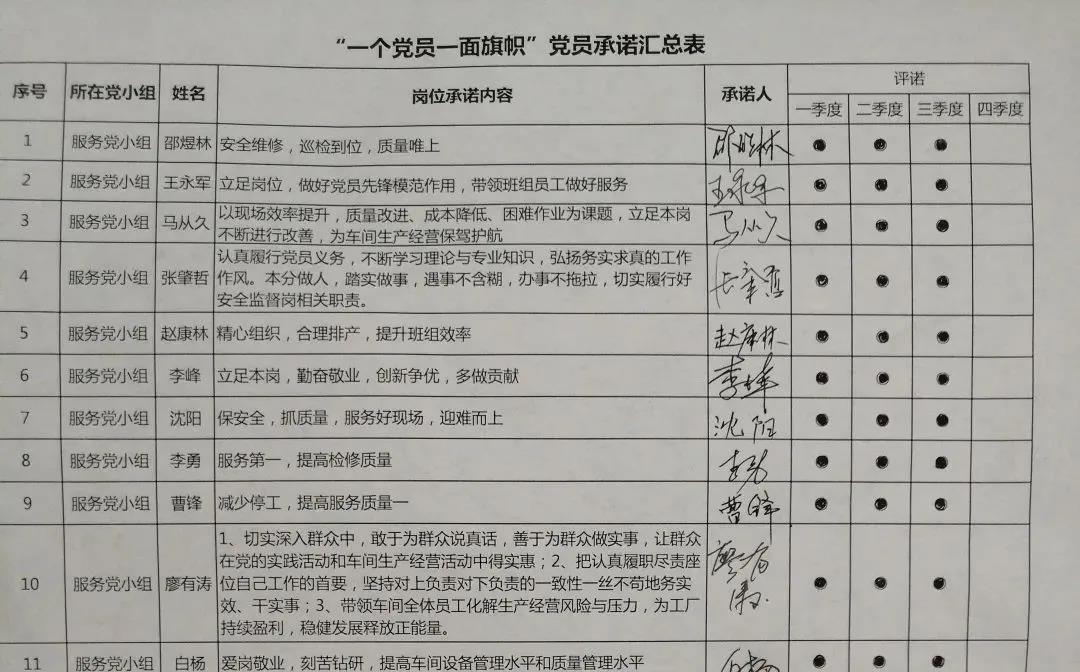 “一个党员一面旗帜”党员承诺汇总表
序号 所在党小组 姓名 岗位承诺内容 承诺人 评诺
一季度 二季度 三季度 四季度
1 服务党小组 邵煜林 安全维修，巡检到位，质量唯上 邵煜林
2 服务党小组 王永军 立足岗位，做好党员先锋模范作用，带领班组员工做好服务 王永军
3 服务党小组 马从久 以现场效率提升，质量改进、成本降低、困难作业为课题，立足本岗 马从久
不断进行改善，为车间生产经营保驾护航
4 服务党小组 张肇哲 认真履行党员义务，不断学习理论与专业知识，弘扬务实求真的工作 张肇哲
作风。本分做人，踏实做事，遇事不含糊，办事不拖拉，切实履行好
安全监督岗相关职责。
5 服务党小组 赵康林 精心组织，合理排产，提升班组效率 赵康林
6 服务党小组 李峰 立足本岗，勤奋敬业，创新争优，多做贡献 李峰
7 服务党小组 沈阳 保安全，抓质量，服务好现场，迎难而上 沈阳
8 服务党小组 李勇 服务第一，提高检修质量 李勇
9 服务党小组 曹锋 减少停工，提高服务质量一 曹锋
10 服务党小组 廖有涛 1、切实深入群众中，敢于为群众说真话，善于为群众做实事，让群众 廖有涛
在党的实践活动和车间生产经营活动中得实惠；2、把认真履职尽责座
位自己工作的首要，坚持对上负责对下负责的一致性一丝不苟地务实
效、干实事；3、带领车间全体员工化解生产经营风险与压力，为工厂
持续盈利，稳健发展释放正能量。
11 服务党小组 白杨 爱岗敬业，刻苦钻研，提高车间设备管理水平和质量管理水平 白杨